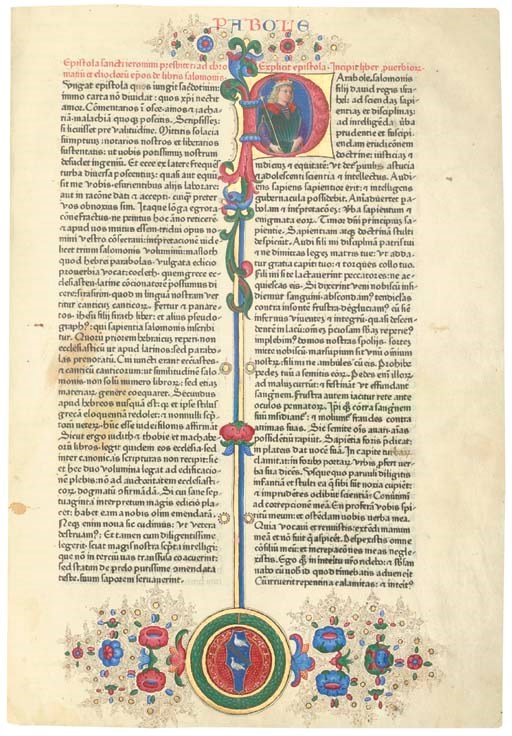 PABOLE
Epistola sancti ieronimi presbiteri ad chro
matiū et eliodorū ep̄os de libris salomonis
Vngat epistola quos iungit sacerdotium
immo carta nō diuidat: quos xp̄i nectit
amor. Cōmentarios ī osee. amos ⁊ zacha
riā. malachiā quoqꝫ poscitis. Scripsissem:
si licuisset pre valitudine. Mittitis solacia
sumptuum: notarios nostros et librarios
sustentatis: ut uobis potissimum nostrum
desudet ingeniū. Et ecce ex latere frequēs
turba diuersa poscentium: quasi aut equū
sit me vobis esurientibus aliis laborare:
aut in racōne dati ⁊ accepti. cuiqꝫ preter
vos obnoxius sim. Itaque lōga egrotati
cōne fractus: ne penitus hoc āno reticerē:
⁊ apud uos mutus essem. tridui opus no
mini vestro cōsecraui: interpretacōnē uide
licet trium salomonis voluminū: masloth
quod hebrei parabolas. vulgata edicio
prouerbia vocat: coeleth. quem grece ec
clesiasten. latine cōcionatorē possumus di
cere: sirasirim. quod in linguā nostram ver
titur canticū canticorū. Fertur ⁊ panare
tos. ihesu filii sirach liber: et alius pseudo
graph⁹. qui sapientia salomonis inscribi
tur. Quorū priorem hebraicuꝫ reperi. non
ecclesiasticū ut apud latinos. sed parabo
las prenotatū. Cui iuncti erant ecclesiastes.
⁊ canticū canticorum: ut similitudinē salo
monis. non solū numero librorꝫ: sed etiaꝫ
materiarꝫ genere coequaret. Secundus
apud hebreos nusquā est: qꝫ et ipse stilus
grecā eloquentiā redolet: ⁊ nonnulli scp
torū veterꝫ hūc esse iudei filonis affirmāt.
Sicut ergo iudith ⁊ thobie et machabe
orū libros. legit quidem eos ecclesia. sed
inter canonicas scripturas non recipit: sic
et hec duo volumina legat ad edificacio
nē plebis: nō ad auctoritatem ecclesiasti
corꝫ dogmatū ofirmādā. Si cui sane sep
tuaginta interpretum magis edicio pla
cet: habet eam a nobis olim emendatā.
Neqꝫ enim noua sic cudimus: ut vetera
destruam⁹. Et tamen cum diligentissime
legerit. sciat magis nostra scpta intelligi:
que nō in terciū vas trāsfusa coacuerint:
sed statim de prelo purissime omendata
teste. suum saporem seruauerint.
Explicit epistola. Incipit liber puerbiorꝫ
Arabole. salomonis
filii dauid regis isra
hel: ad sciendaꝫ sapi
entiaꝫ et disciplinaꝫ:
ad intelligēda ūba
prudentie et suscipi
endam erudicōnem
doctrine: iusticiaꝫ ⁊
iudiciuꝫ ⁊ equitatē: vt det᷑ puulis astucia
⁊ adolescenti scientia ⁊ intellectus. Audi
ens sapiens sapientior erit: ⁊ intelligens
gubernacula possidebit. Animaduertet pa
bolam ⁊ inṗretacōez: Vba sapientum ⁊
enigmata eorꝫ. Timor dn̄i principiuꝫ sa
pientie. Sapientiam atqꝫ doctrinā stulti
despiciūt. Audi fili mi disciplinā patris tui
⁊ ne dimittas legeꝫ matris tue: vt adda
tur gratia capiti tuo: ⁊ torques collo tuo.
Fili mi si te lactauerint peccatores: ne ac
quiescas eis. Si dixerint veni nobiscū insi
diemur sanguini: abscondam⁹ tendiclas
contra insontē frustra: deglutiam⁹ eū sic̄
infernus viuentē: ⁊ integrū quasi descen
dentem in lacū: om̄ez p̄ciosam sbaꝫ reperiem⁹
implebim⁹ domos nostras spoliis. Sortem
mitte nobiscū: marsupium sit vnū omnium
nostrꝫ: fili mi ne ambules cū eis. Prohibe
pedeꝫ tuū a semitis eorꝫ. Pedes eni illorꝫ
ad maluꝫ currūt: ⁊ festināt vt effundant
sanguinem. Frustra autem iacitur rete ante
oculos pennatorꝫ. Ip̄i qꝫ contra sanguinem
suū insidiant᷑: ⁊ moliunt᷑ fraudes contra
animas suas. Sic semite ōīs auari. aīas
possidentiū rapiūt. Sapiētia foris p̄dicat:
in plateis dat vocē suā. In capite turbarꝫ
clamitat: in foribꝫ portarꝫ vrbis pfert ver
ba sua dicēs. Vsquequo paruuli diligitis
infantiā: et stulti ea q̄ sibi sūt noxia cupiēt:
⁊ imprudētes odibūt scientiā: Conūtimī
ad correpcionē meā. En proferā vobis spi
ritū meum: et ostēdam vobis uerba mea.
Quia vocaui et renuistis: extēdi manum
meā et nō fuit q̄ aspicēt. Despexistis omne
cōsiliū meū: et increpacōes meas negle
xistis. Ego qꝫ in interitu vr̄o ridebo: ⁊ sbsan
nabo cū uobis id quod timebatis aduenerit.
Cū irruerit repentina calamitas: ⁊ interit⁹